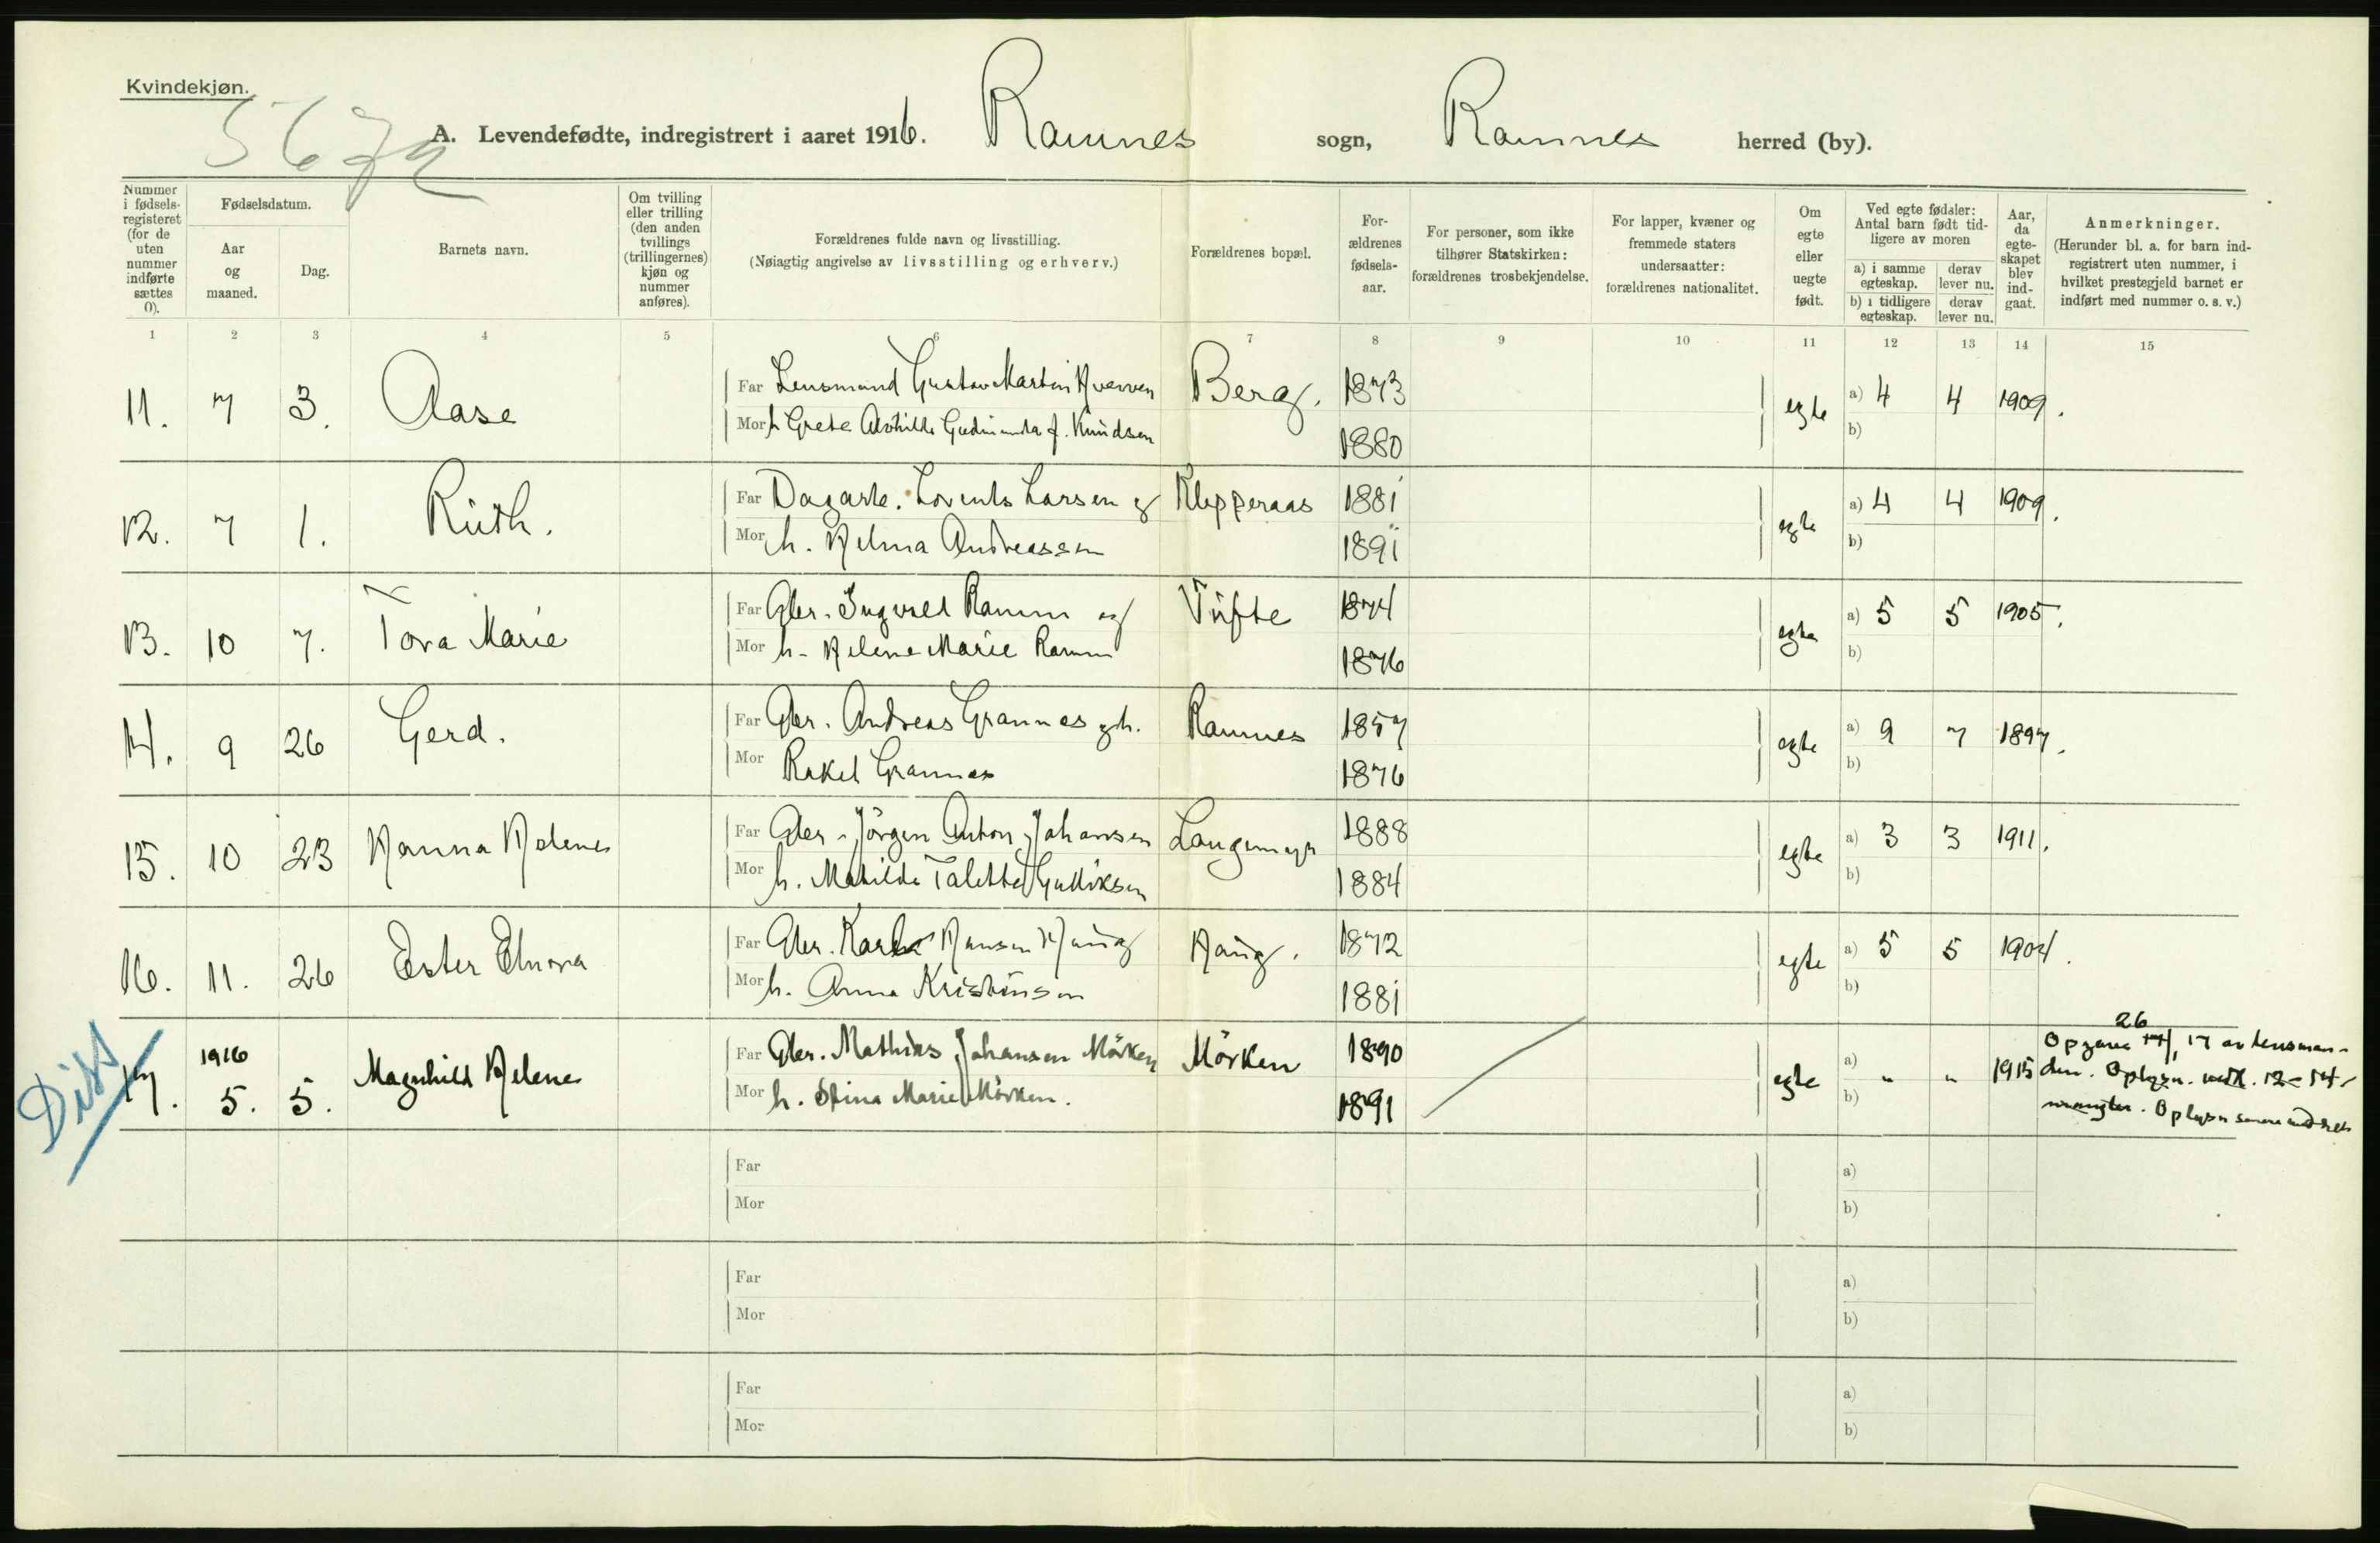 Kvindekjøn.
5672
A. Levendefødte, indregistrert i aaret 1916. Ramnes sogn, Ramnes herred (by).
Nummer i fødsels-registeret (for de uten nummer indførte sættes 0).
Fødselsdatum.
Aar og maaned.
Dag.
Barnets navn.
Om tvilling eller trilling (den anden tvillings (trillingernes) kjøn og nummer anføres).
Forældrenes fulde navn og livsstilling.
(Nøiagtig angivelse av livsstilling og erhverv.)
Forældrenes bopæl.
For-ældrenes fødsels-aar.
For personer, som ikke tilhører Statskirken: forældrenes trosbekjendelse.
For lapper, kvæner og fremmede staters undersaatter: forældrenes nationalitet.
Om egte eller uegte født.
Ved egte fødsler: Antal barn født tid-ligere av moren
a) i samme egteskap.
derav lever nu.
b) i tidligere egteskap.
derav lever nu.
Aar, da egte-skapet blev ind-gaat.
Anmerkninger.
(Herunder bl. a. for barn ind-registrert uten nummer, i hvilket prestegjeld barnet er indført med nummer o. s. v.)
1 2 3 4 5 6 7 8 9 10 11 12 13 14 15
11. 7 3. Aase Far Lensmand Gustav Martin Kverven Berg. 1873 egte a) 4 4 1909.
Mor h Grete Alvhilde Gudmunda f. Knudsen 1880 b)
12. 7 1. Ruth. Far Dagarb. Lorents Larsen og Klepperaas 1881 egte a) 4 4 1909.
Mor h. Helma Andreassen 1891 b)
13. 10 7. Tora Marie Far Gbr. Ingvald Ramm og Tufte 1874 egte a) 5 5 1905.
Mor h. Helene Marie Ramm 1876 b)
14. 9 26 Gerd. Far Gbr. Andreas Grannes og h. Ramnes 1857 egte a) 9 7 1897.
Mor Rakel Grannes 1876 b)
15. 10 23 Hanna Helene Far Gbr. Jörgen Anton Johansen Langemyr 1888 egte a) 3 3 1911.
Mor h. Matilde Talette Gulliksen 1884 b)
16. 11. 26 Ester Elnora Far Gbr. Karl Hansen Haug Haug. 1872 egte a) 5 5 1904.
Mor h. Anna Kristensen 1881 b)
Diss 17. 1916 5. 5. Magnhild Helene Far Gbr. Mathias Johansen Mörken Mörken 1890 egte a) " " 1915
Mor h. Stina Marie Mörken. 1891 b)
26
Opgave 17 av lensman-
den. Oplysn. vedk. 12-14
mangler. Oplysn senere
Far a)
Mor b)
Far a)
Mor b)
Far a)
Mor b)